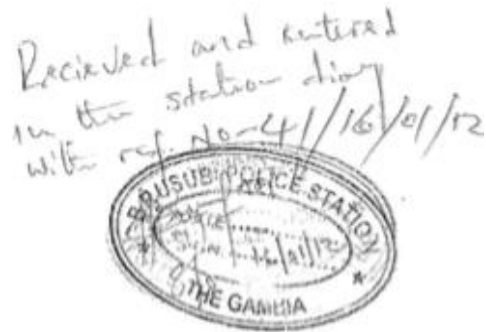 Recieved and entered
in the station diary
with ref. No-41/16/01/12
BRUSUBI POLICE STATION
16/01/12
THE GAMBIA